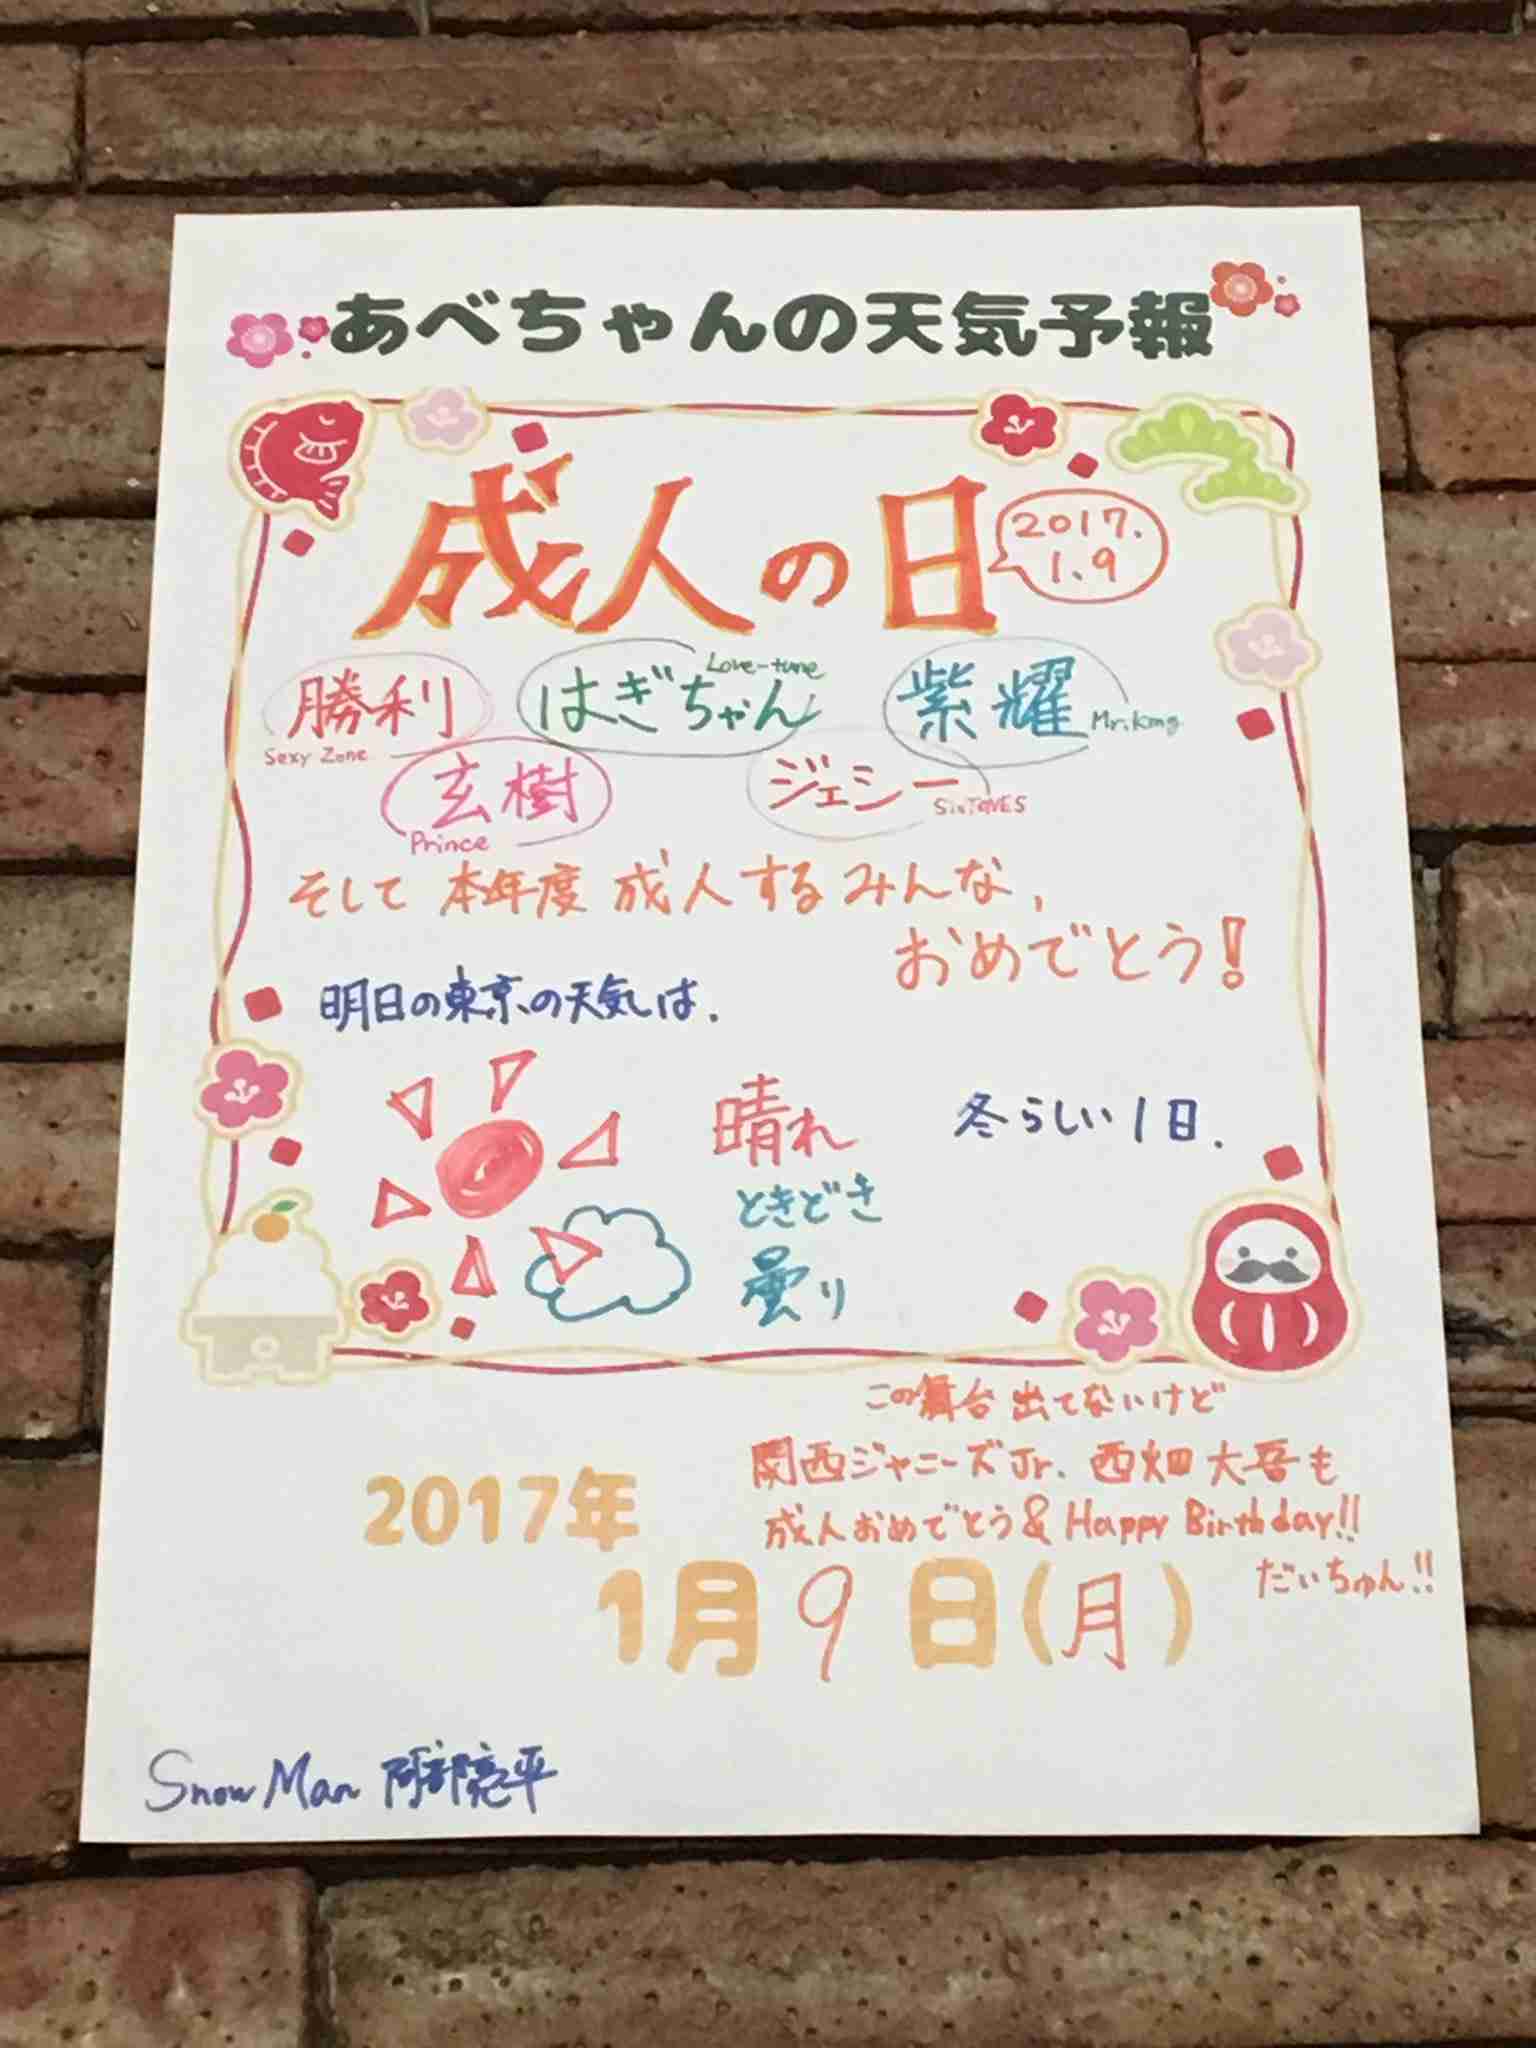 あべちゃんの天気予報
成人の日
2017.
1.9
勝利 はぎちゃん Love-tune 紫耀 Mr.King
Sexy Zone
玄樹 ジェシー SixTONES
Prince
そして 本年度 成人するみんな、
おめでとう!
明日の東京の天気は、
晴れ
ときどき
曇り
冬らしい1日.
この舞台 出てないけど
関西ジャニーズJr. 西畑 大吾も
成人おめでとう & Happy Birthday!!
だいちゅん!!
2017年
1月9日(月)
Snow Man 阿部亮平